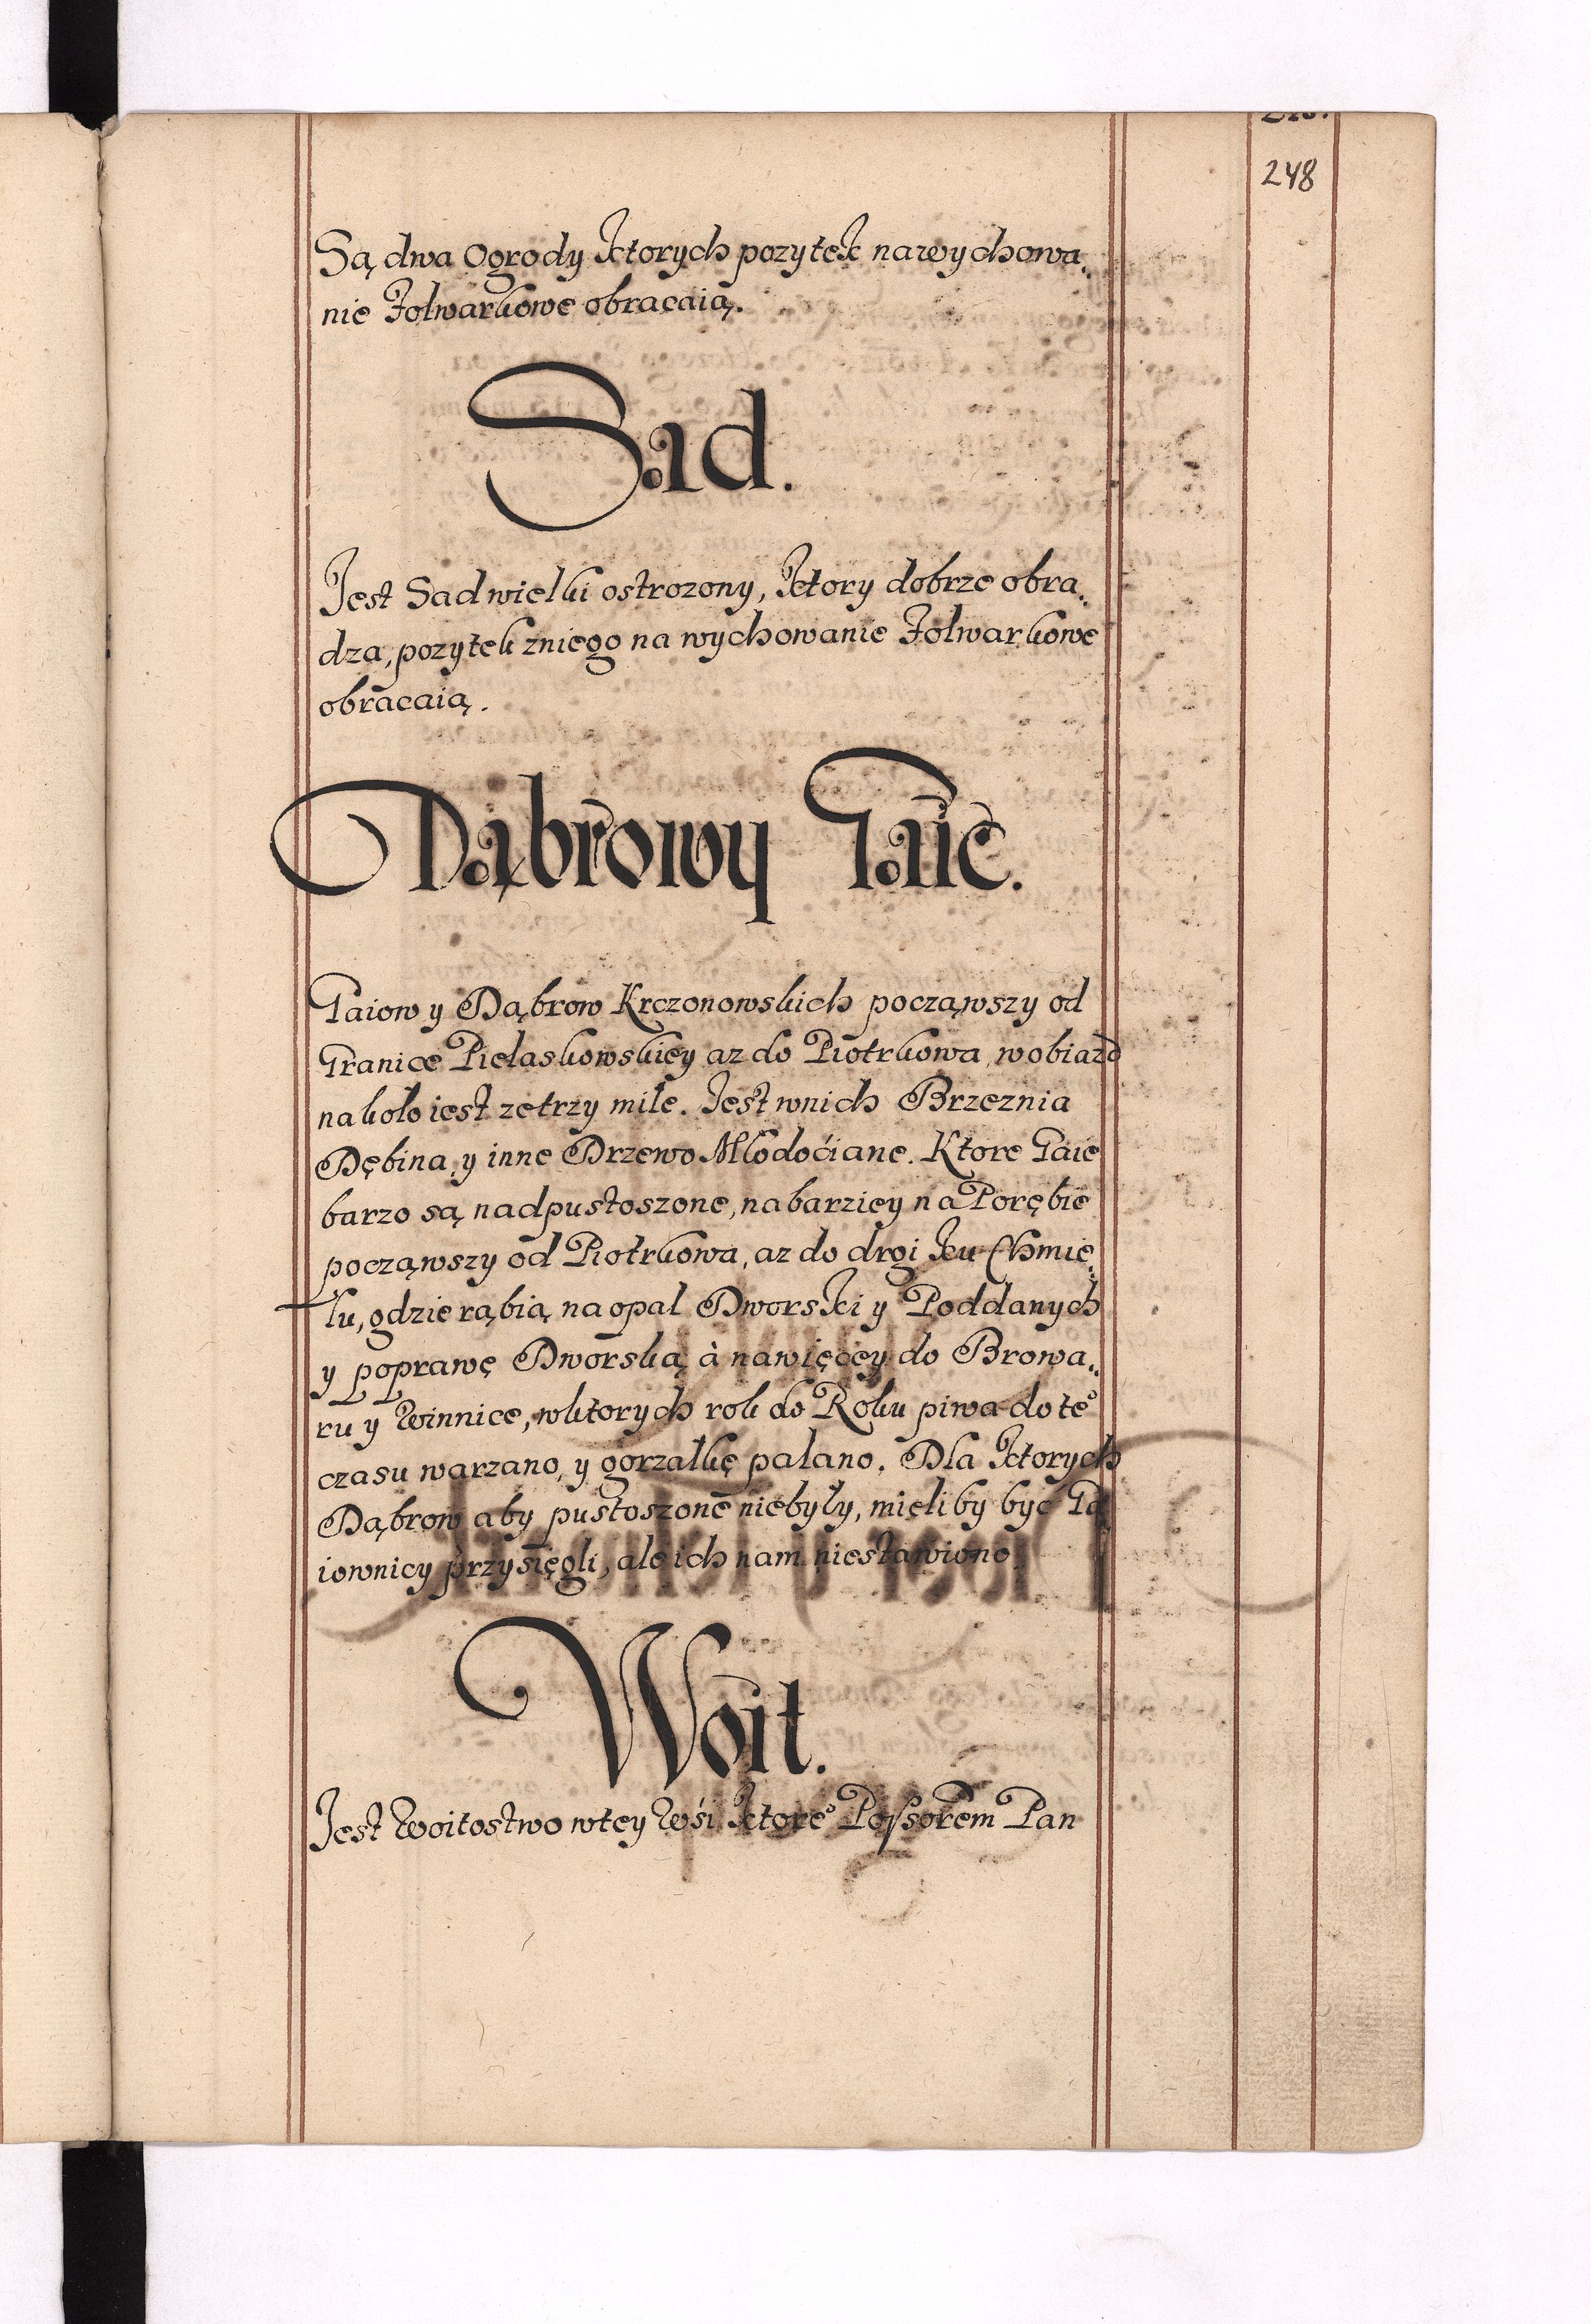 248
Są dwa Ogrody ktorych pozytek na wychowa„
nie Folwarkowe obracaią.
Sad.
Jest Sad wielki ostrozony, ktory dobrze obra„
dza, pozytek z niego na wychowanie Folwarkowe
obracaią.
Dąbrowy Gaie.
Gaiow y Dąbrow Krczonowskich począwszy od
Granice Pielaskowskiey az do Piotrkowa, w obiazd
na koło iest ze trzy mile. Jest w nich Brzeznia
Dębina, y inne Drzewo Młodociane. Ktore Gaie
barzo są nadpustoszone, nabarziey na Porębie
począwszy od Piotrkowa, az do drogi ku Chmie„
lu, gdzie rąbią na opał Dworski y Poddanych
y poprawę Dworską, à nawięcey do Browa„
ru y Winnice, w ktorych rok do Roku piwa do te°
czasu warzano, y gorzałkę palano. Dla ktorych
Dąbrow aby pustoszone niebyły, mieliby być Ga
iownicy przysięgli, ale ich nam niestawiono
Woit.
Jest Woitostwo w tey Wśi ktore° Possorem Pan